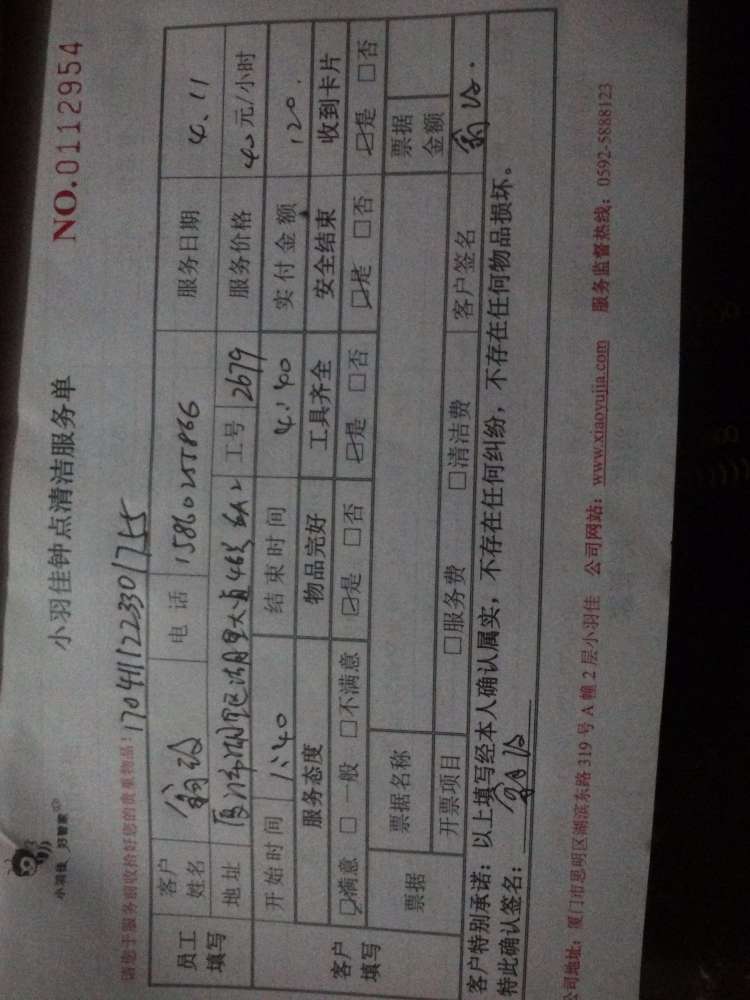 小羽佳 好管家
小羽佳钟点清洁服务单
NO.0112954
请您于服务前收拾好您的贵重物品!
1704111223301755
员工填写
客户姓名
电话 15860255866
服务日期 4.11
地址
工号 2679
服务价格 40元/小时
客户填写
开始时间 1:40
结束时间 4:40
实付金额 120.
服务态度 物品完好 工具齐全 安全结束 收到卡片
☑满意 □一般 □不满意 ☑是 □否 ☑是 □否 ☑是 □否 ☑是 □否
票据 票据名称 票据金额
开票项目 □服务费 □清洁费 客户签名
客户特别承诺:以上填写经本人确认属实,不存在任何纠纷,不存在任何物品损坏。
特此确认签名:
公司地址:厦门市思明区湖滨东路319号A幢2层小羽佳 公司网站:www.xiaoyujia.com 服务监督热线:0592-5888123